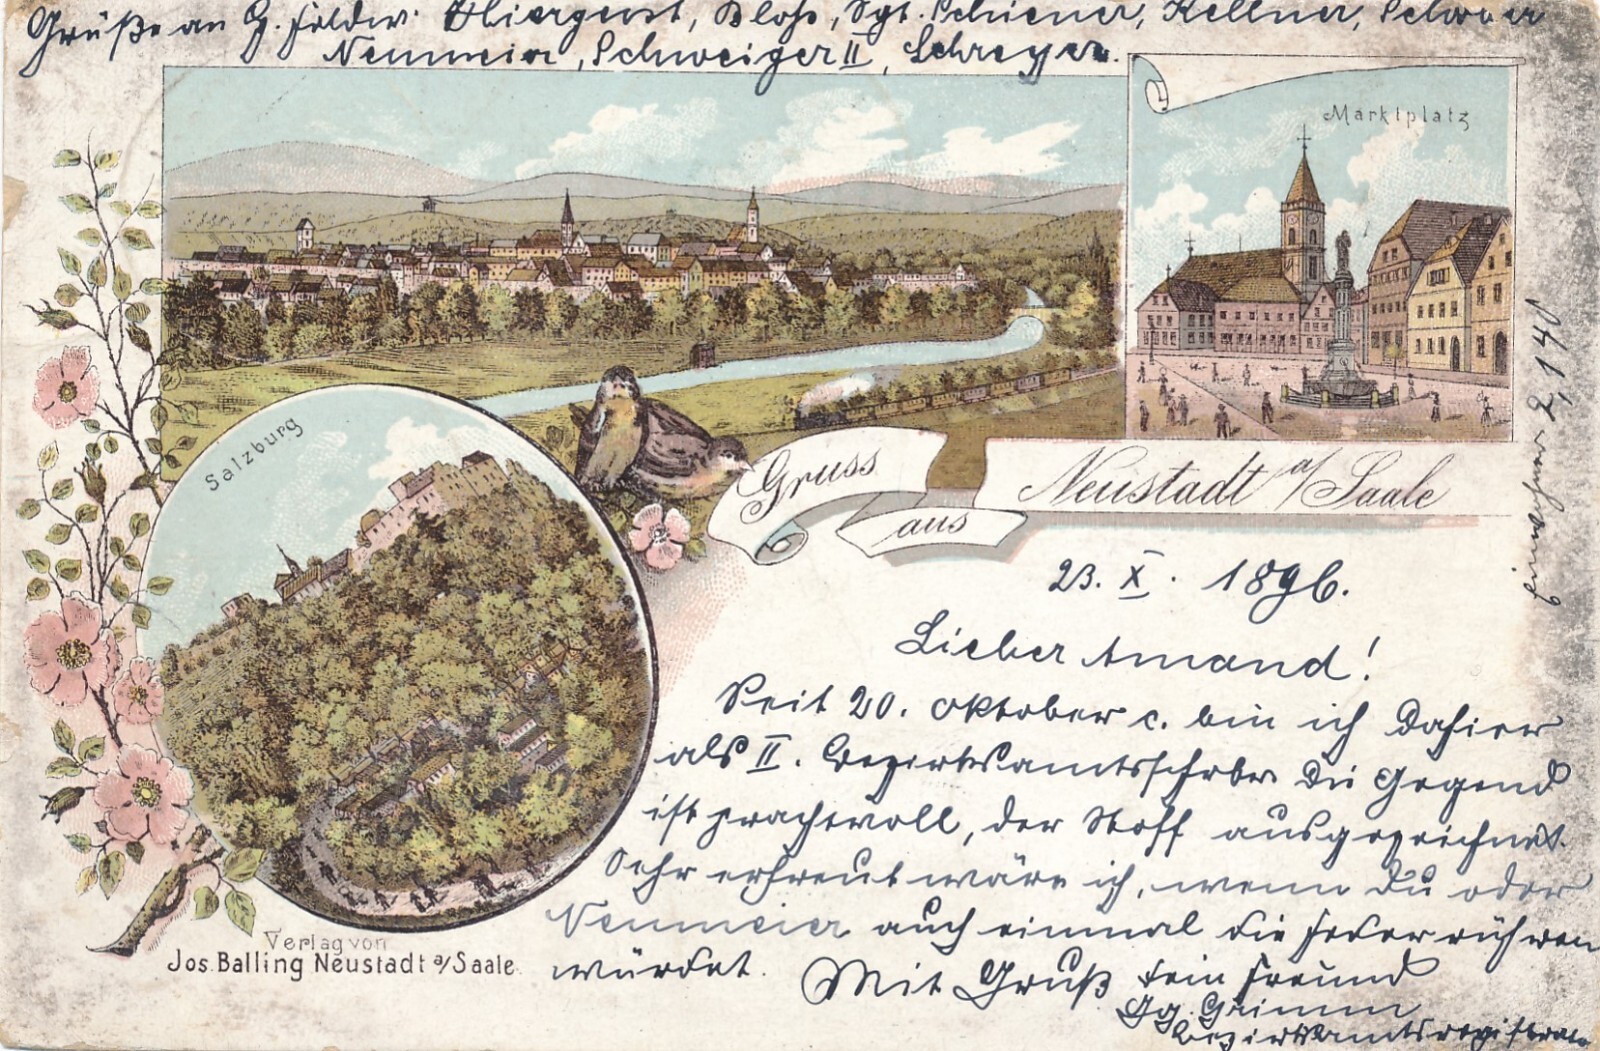 Grüße an G. Feldw. Bloß, Sgt. Schiener, Kellner,
Neumeier, Schweiger II, Schreyer.
Marktplatz
Salzburg
Gruss
aus
Neustadt a/Saale
23. X. 1896.
Lieber Amand!
Seit 20. Oktober c. bin ich dahier
als II. Bezirksamtsschrbr die Gegend
ist prachtvoll, der Stoff ausgezeichnet.
Sehr erfreut wäre ich, wenn Du oder
Neumeier auch einmal die Feder rühren
würdet. Mit Gruß Dein Freund
Gg. Grimm
Einwohner 2,140
Verlag von
Jos. Balling Neustadt a/Saale.